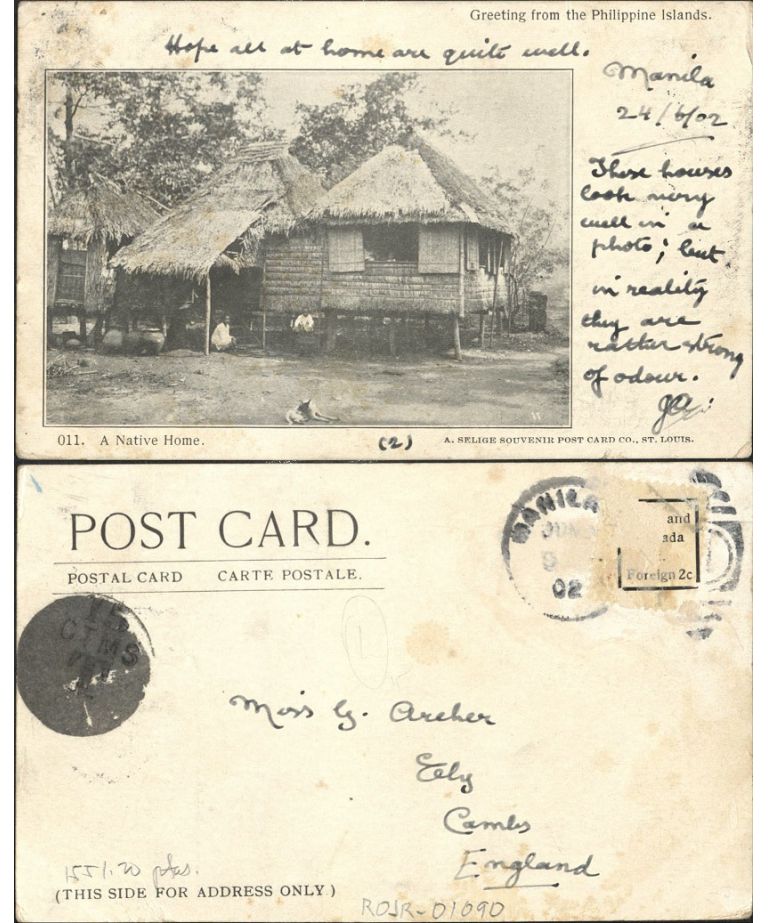 Greeting from the Philippine Islands.
Hope all at home are quite well.
Manila
24/6/02
These houses
look very
well in a
photo; but
in reality
they are
rather strong
of odour.
011. A Native Home.
(2)
A. SELIGE SOUVENIR POST CARD CO., ST. LOUIS.
POST CARD.
POSTAL CARD CARTE POSTALE.
MANILA
JUN
9
02
and
ada
Foreign 2c
15
CTMS
Miss G. Archer
Ely
Cambs
England
155/.20 ptas.
(THIS SIDE FOR ADDRESS ONLY)
ROJR-01090